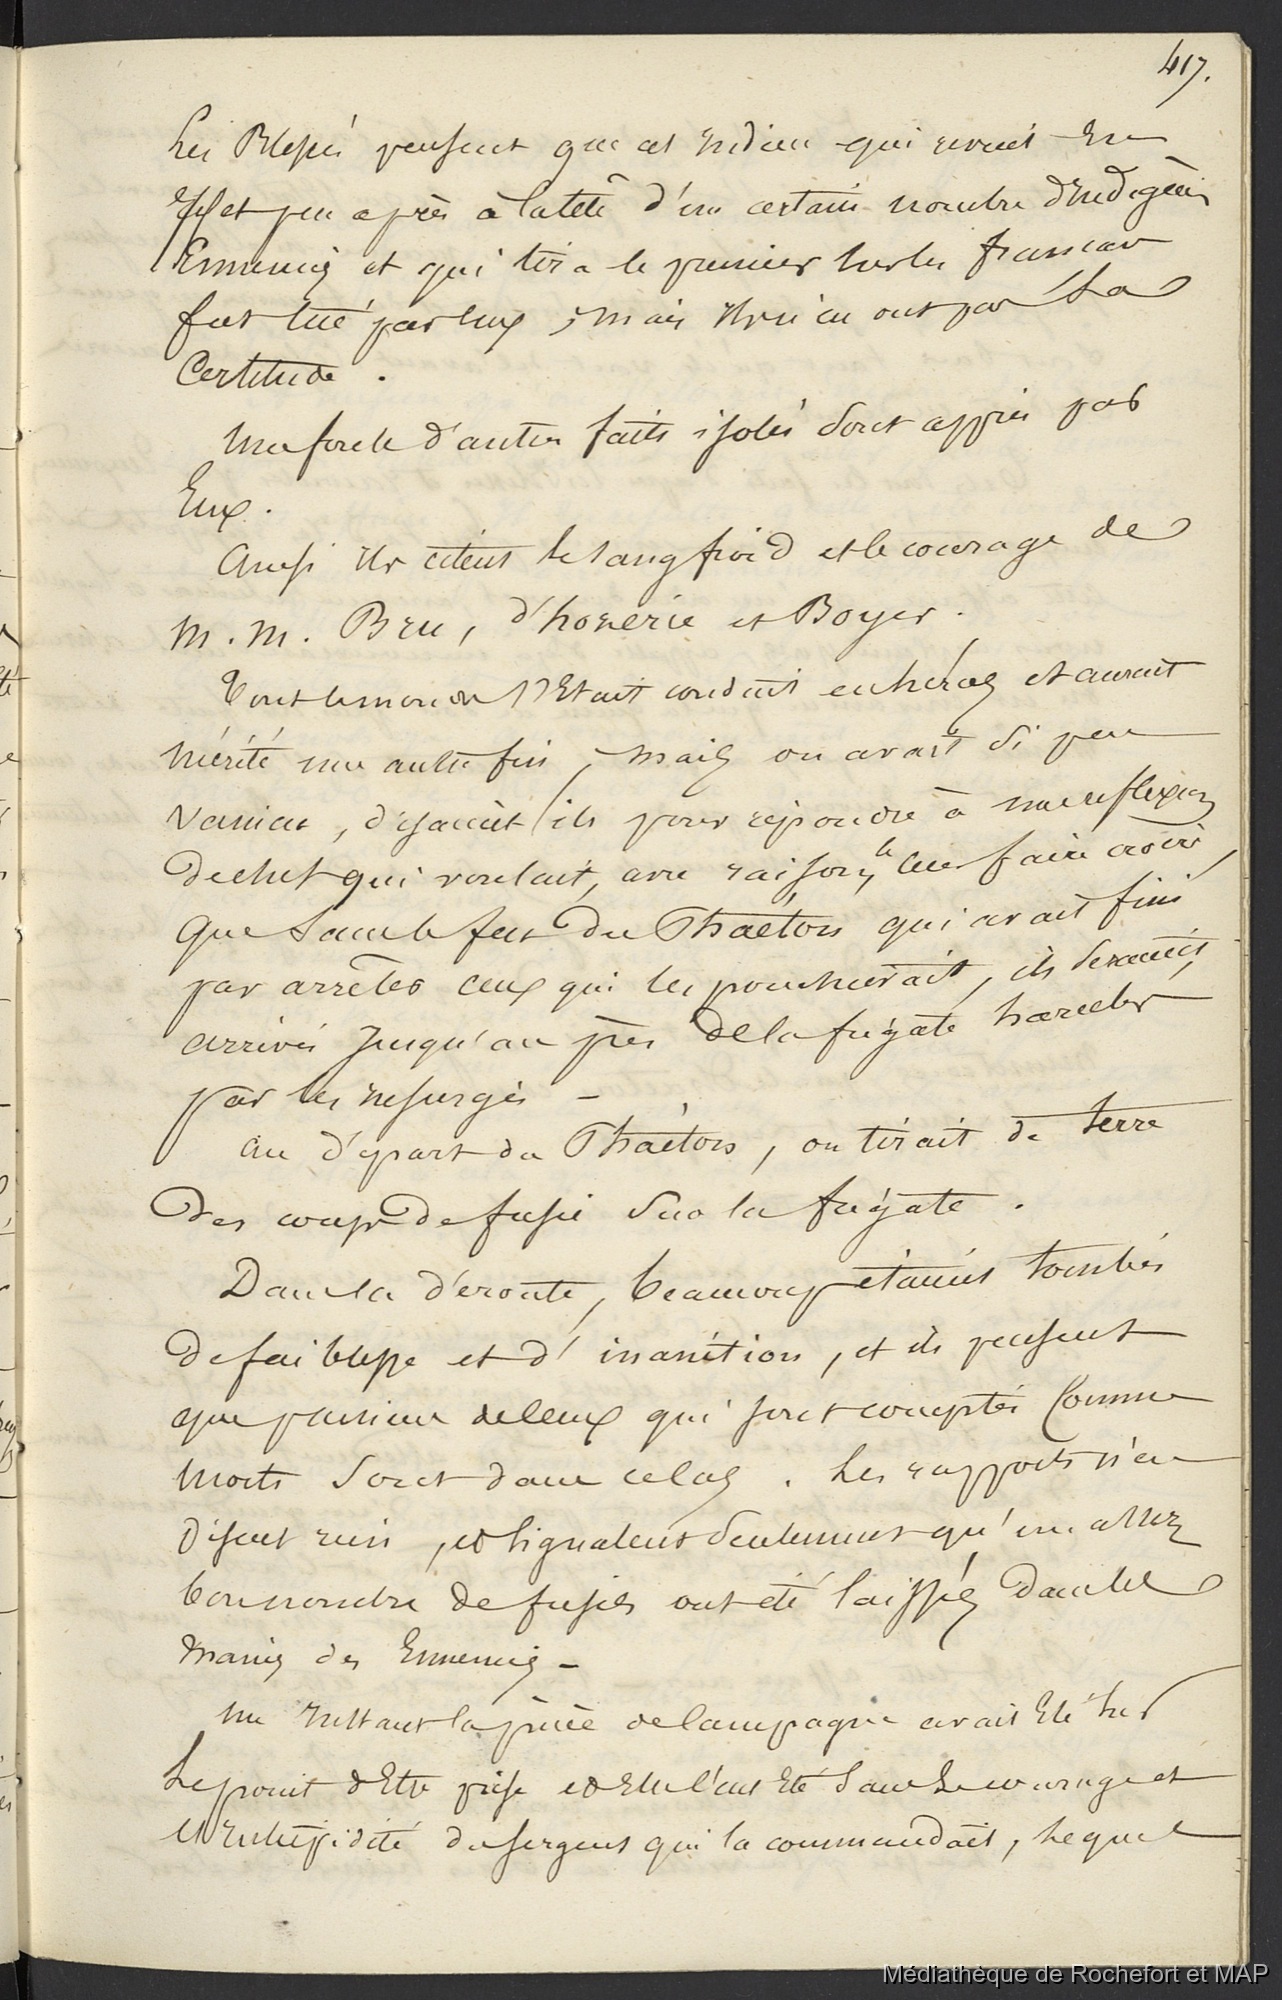 417.
Les Blessés pensent que cet Indien qui revint En
Effet peu après à la tête d'un certain nombre d'Indigènes
Ennemis et qui tira le premier sur les francais
fut tué par eux, mais ils n'en ont pas la
Certitude.
Une foule d'autres faits isolés sont appris par
Eux.
Ainsi ils citent le sang froid et le courage de
M. M. Bru, d'honerie et Boyer.
Tout le monde s'Etait conduit en héros et aurait
mérité une autre fin, mais on avait si peu
, disaient ils pour répondre à une reflexion
de chef qui voulait, avec raison, leur faire croire,
que sans le feu du Phaéton qui avait fini
par arrêter ceux qui les pourchassait, ils seraient
arrivés jusqu'au près de la frégate harcelés
par les insurgés -
au départ du Phaéton, on tirait de terre
Des coups de fusil sur la frégate.
Dans la déroute, beaucoup étaient tombés
de faiblesse et d'inanition, et ils pensent
que plusieurs de ceux qui sont comptés Comme
morts sont dans ce cas. Les rapports n'en
disent rien, et signalent seulement qu'un assez
bon nombre de fusils ont été laissés dans les
mains des Ennemis -
Un Instant la pièce de campagne avait Eté sur
Le point d'Etre prise et Elle l'eut Eté sans Le courage et
l'Intrépidité du sergent qui la commandait, Lequel
Médiathèque de Rochefort et MAP